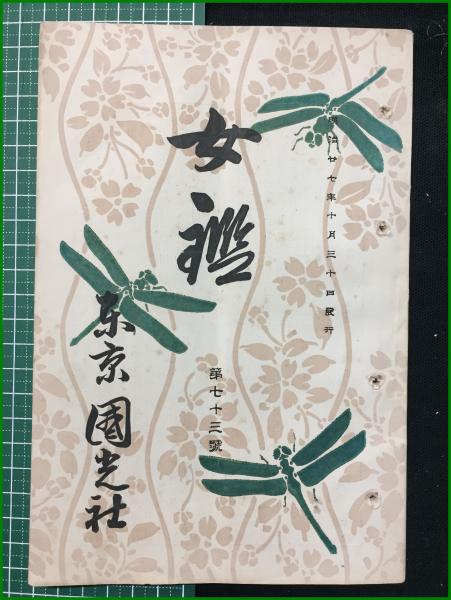 明治廿七年十月三十日発行
女鑑
第七十三號
东京國光社